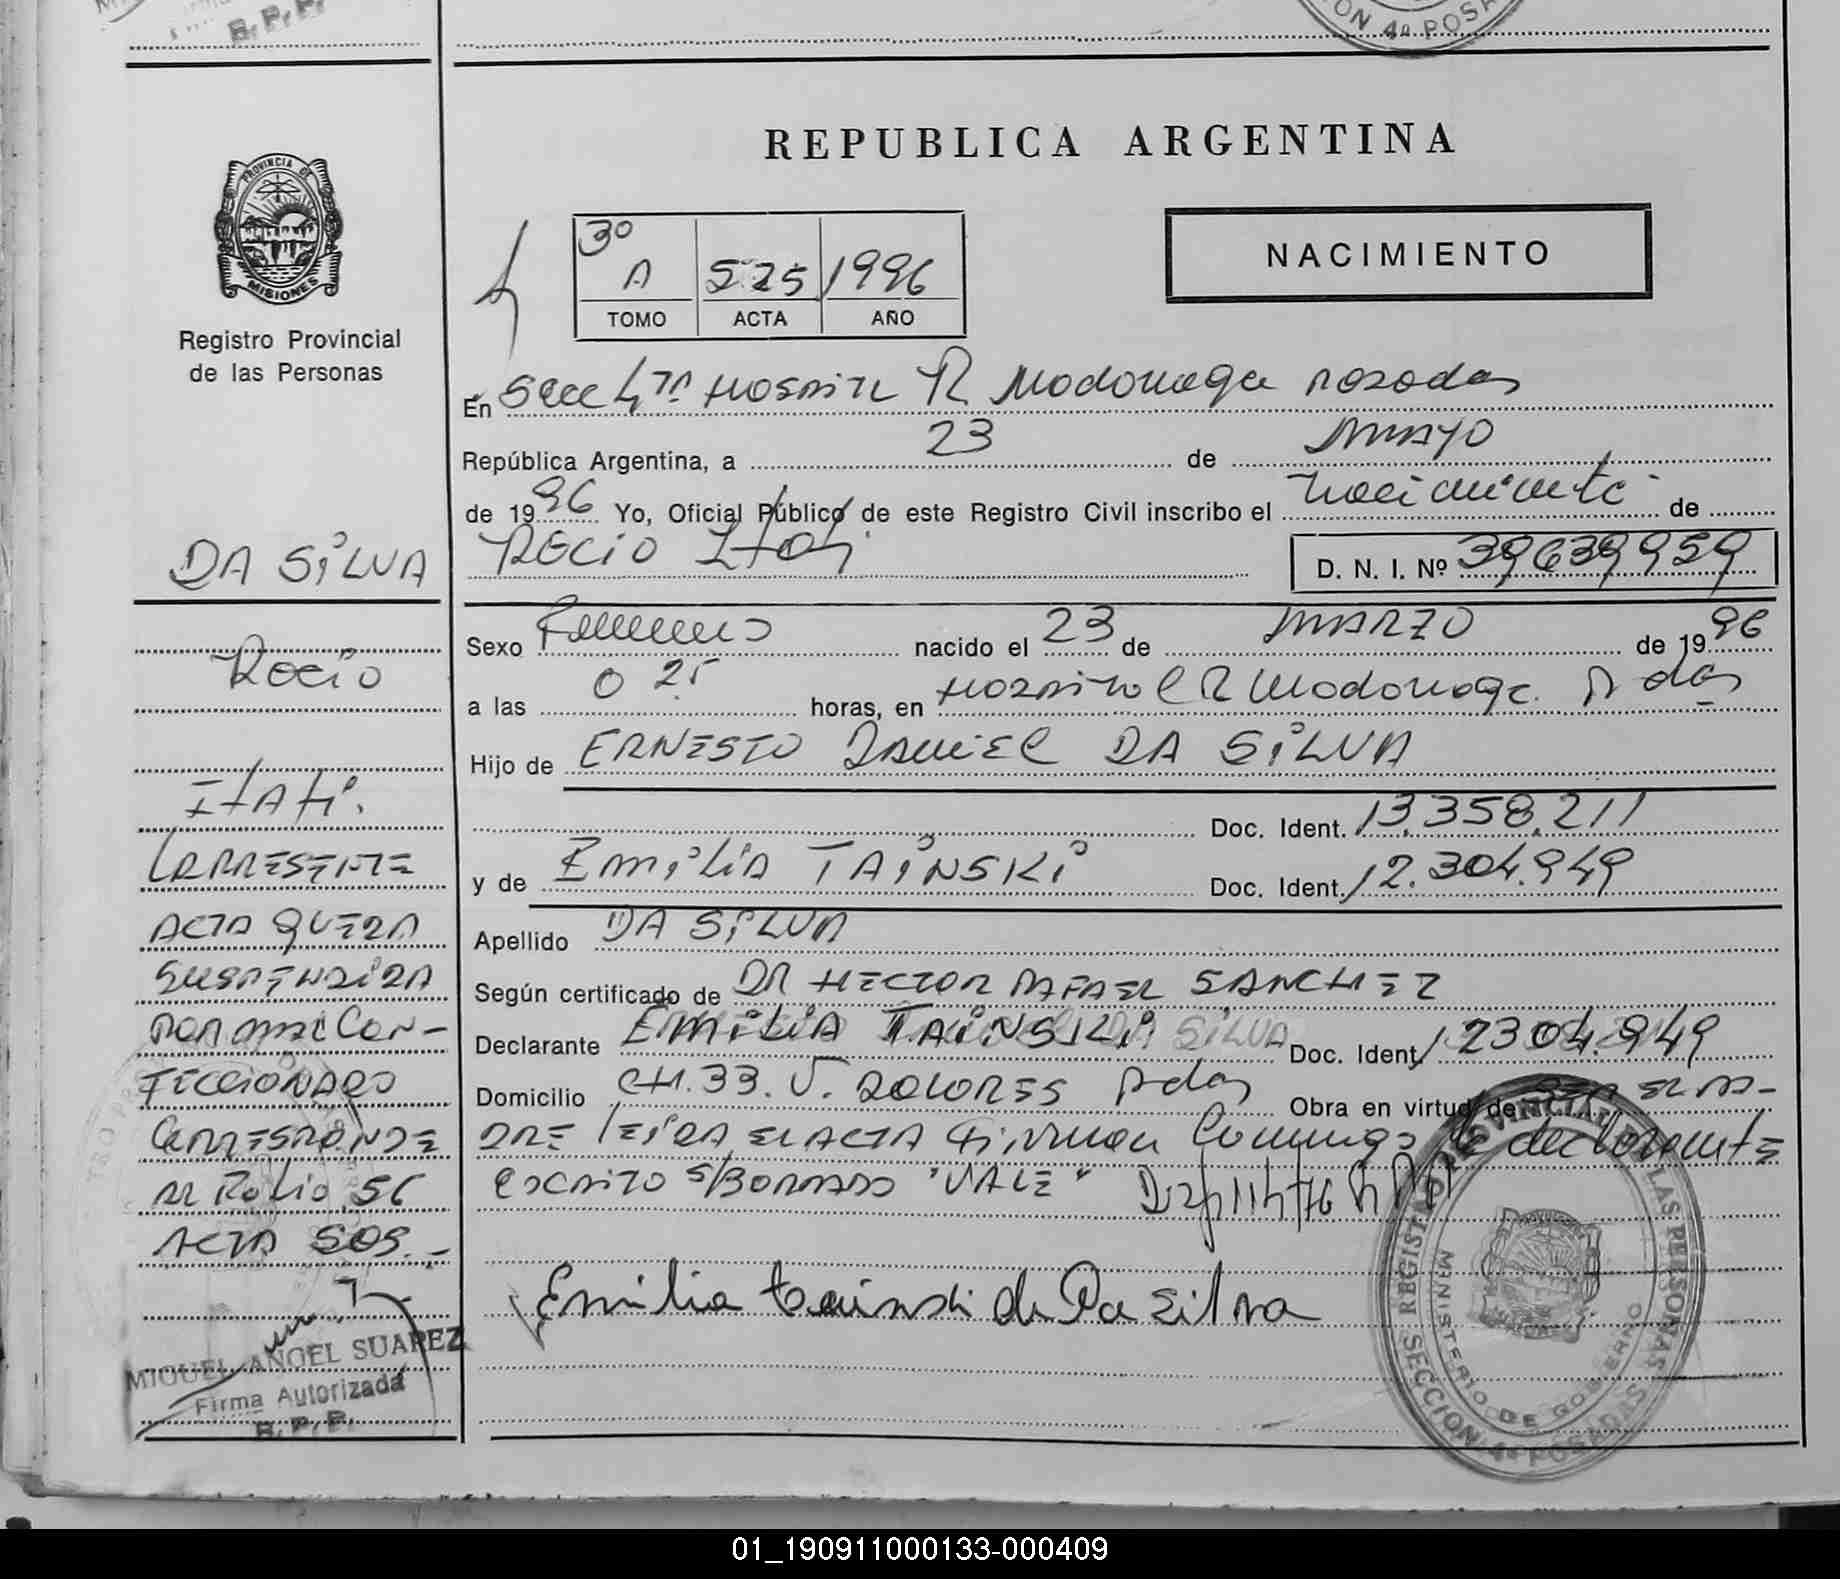 B. P. P.
ION 4ª POSA
REPUBLICA ARGENTINA
PROVINCIA DE
MISIONES
Registro Provincial
de las Personas
NACIMIENTO
3º
A 525 1996
TOMO ACTA AÑO
En Secc 4ta Hospital R Madariaga Posadas
República Argentina, a 23 de MAYO
de 1996 Yo, Oficial Público de este Registro Civil inscribo el nacimiento de
ROCIO Itati
D. N. I. Nº 39639959
Sexo Femenino nacido el 23 de MARZO de 1996
a las 0 25 horas, en Hospital R Madariaga Pdas
Hijo de ERNESTO DANIEL DA SILVA
Doc. Ident. 13.358.211
y de EMILIA TAINSKI Doc. Ident. 12.304.949
Apellido DA SILVA
Según certificado de DR HECTOR RAFAEL SANCHEZ
Declarante EMILIA TAINSKI DA SILVA Doc. Ident. 12304.949
Domicilio CH. 33. V. DOLORES Pdas Obra en virtud de SER EL PA-
DRE LEIDA EL ACTA Firman Conmigo declarante
ESCRITO S/BORRADO "VALE"
Emilia tainski de Da Silva
DA SILVA
Rocio
ITATI.
LA PRESENTE
ACTA QUEDA
SUSPENDIDA
POR MAL CON-
FECCIONADO
CORRESPONDE
AL FOLIO 56
ACTA 509.-
MIGUEL ANGEL SUAREZ
Firma Autorizada
B. P. P.
REGISTRO PROVINCIAL DE LAS PERSONAS
MINISTERIO DE GOBIERNO
SECCION 4ª POSADAS
01_190911000133-000409